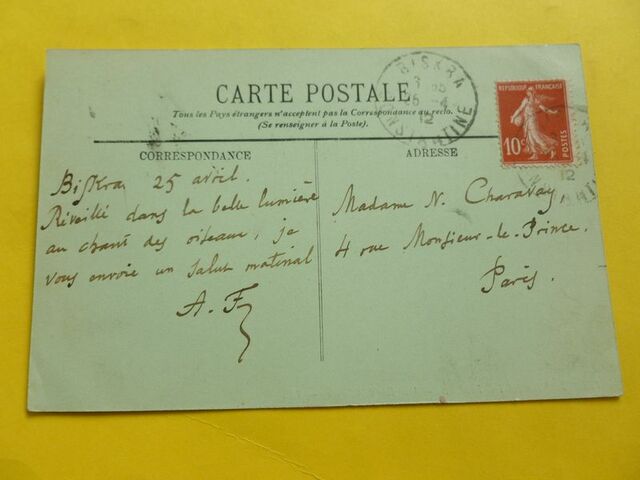 CARTE POSTALE
Tous les Pays étrangers n'acceptent pas la Correspondance au recto.
(Se renseigner à la Poste).
BISKRA
25 -4
12
CONSTANTINE
REPUBLIQUE FRANÇAISE
10c
POSTES
12
CORRESPONDANCE
Biskra 25 avril.
Réveillé dans la belle lumière
au chant des oiseaux, je
vous envoie un salut matinal
A. F
ADRESSE
Madame N. Charavay,
4 rue Monsieur-le-Prince.
Paris.